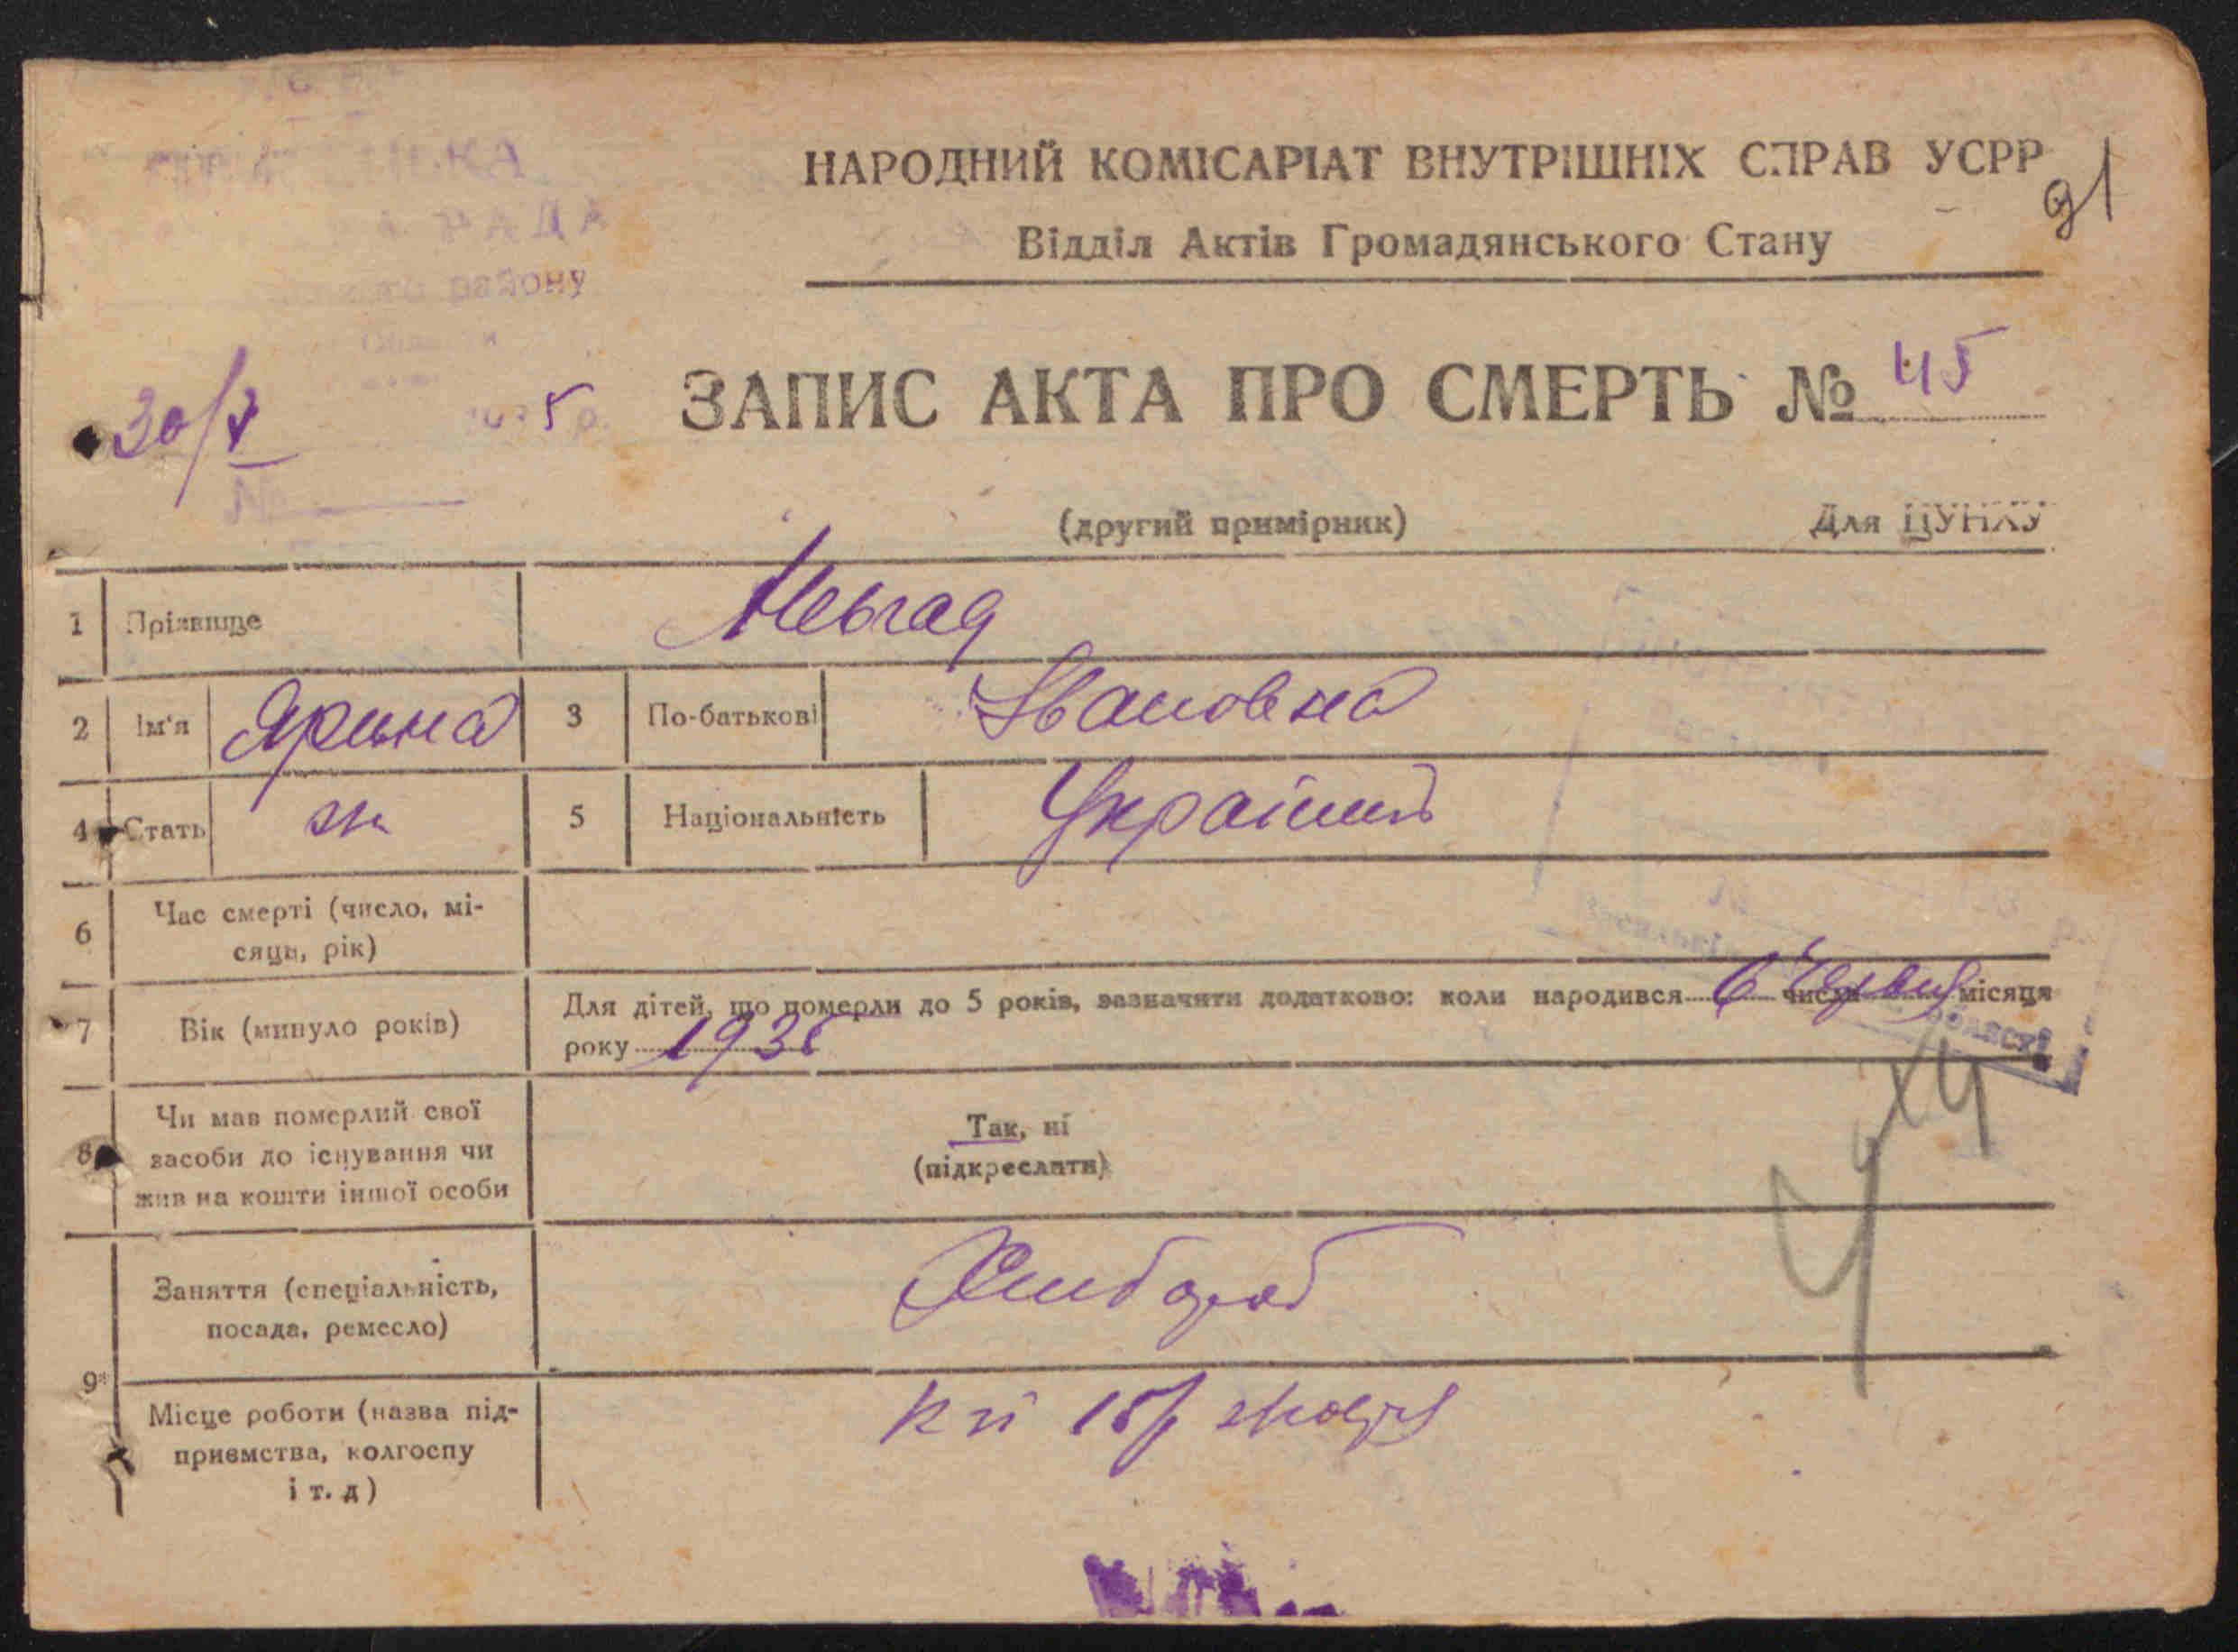 НАРОДНИЙ КОМІСАРІАТ ВНУТРІШНІХ СПРАВ УСРР
91
Відділ Актів Громадянського Стану
РАДА
району
30/X 5 р.
ЗАПИС АКТА ПРО СМЕРТЬ № 45
№
(другий примірник) Для ЦУНХУ
1 Прізвище
2 Ім'я Ярина 3 По-батькові Івановна
4 Стать ж 5 Національність
6 Час смерті (число, мі-
сяць, рік)
7 Вік (минуло років) Для дітей, що померли до 5 років, зазначити додатково: коли народився 6 числа місяця
року 1935
8 Чи мав померлий свої
засоби до існування чи
жив на кошти іншої особи
Так, ні
(підкреслити)
9 Заняття (спеціальність,
посада, ремесло)
Хлібороб
Місце роботи (назва під-
приємства, колгоспу
і т. д)